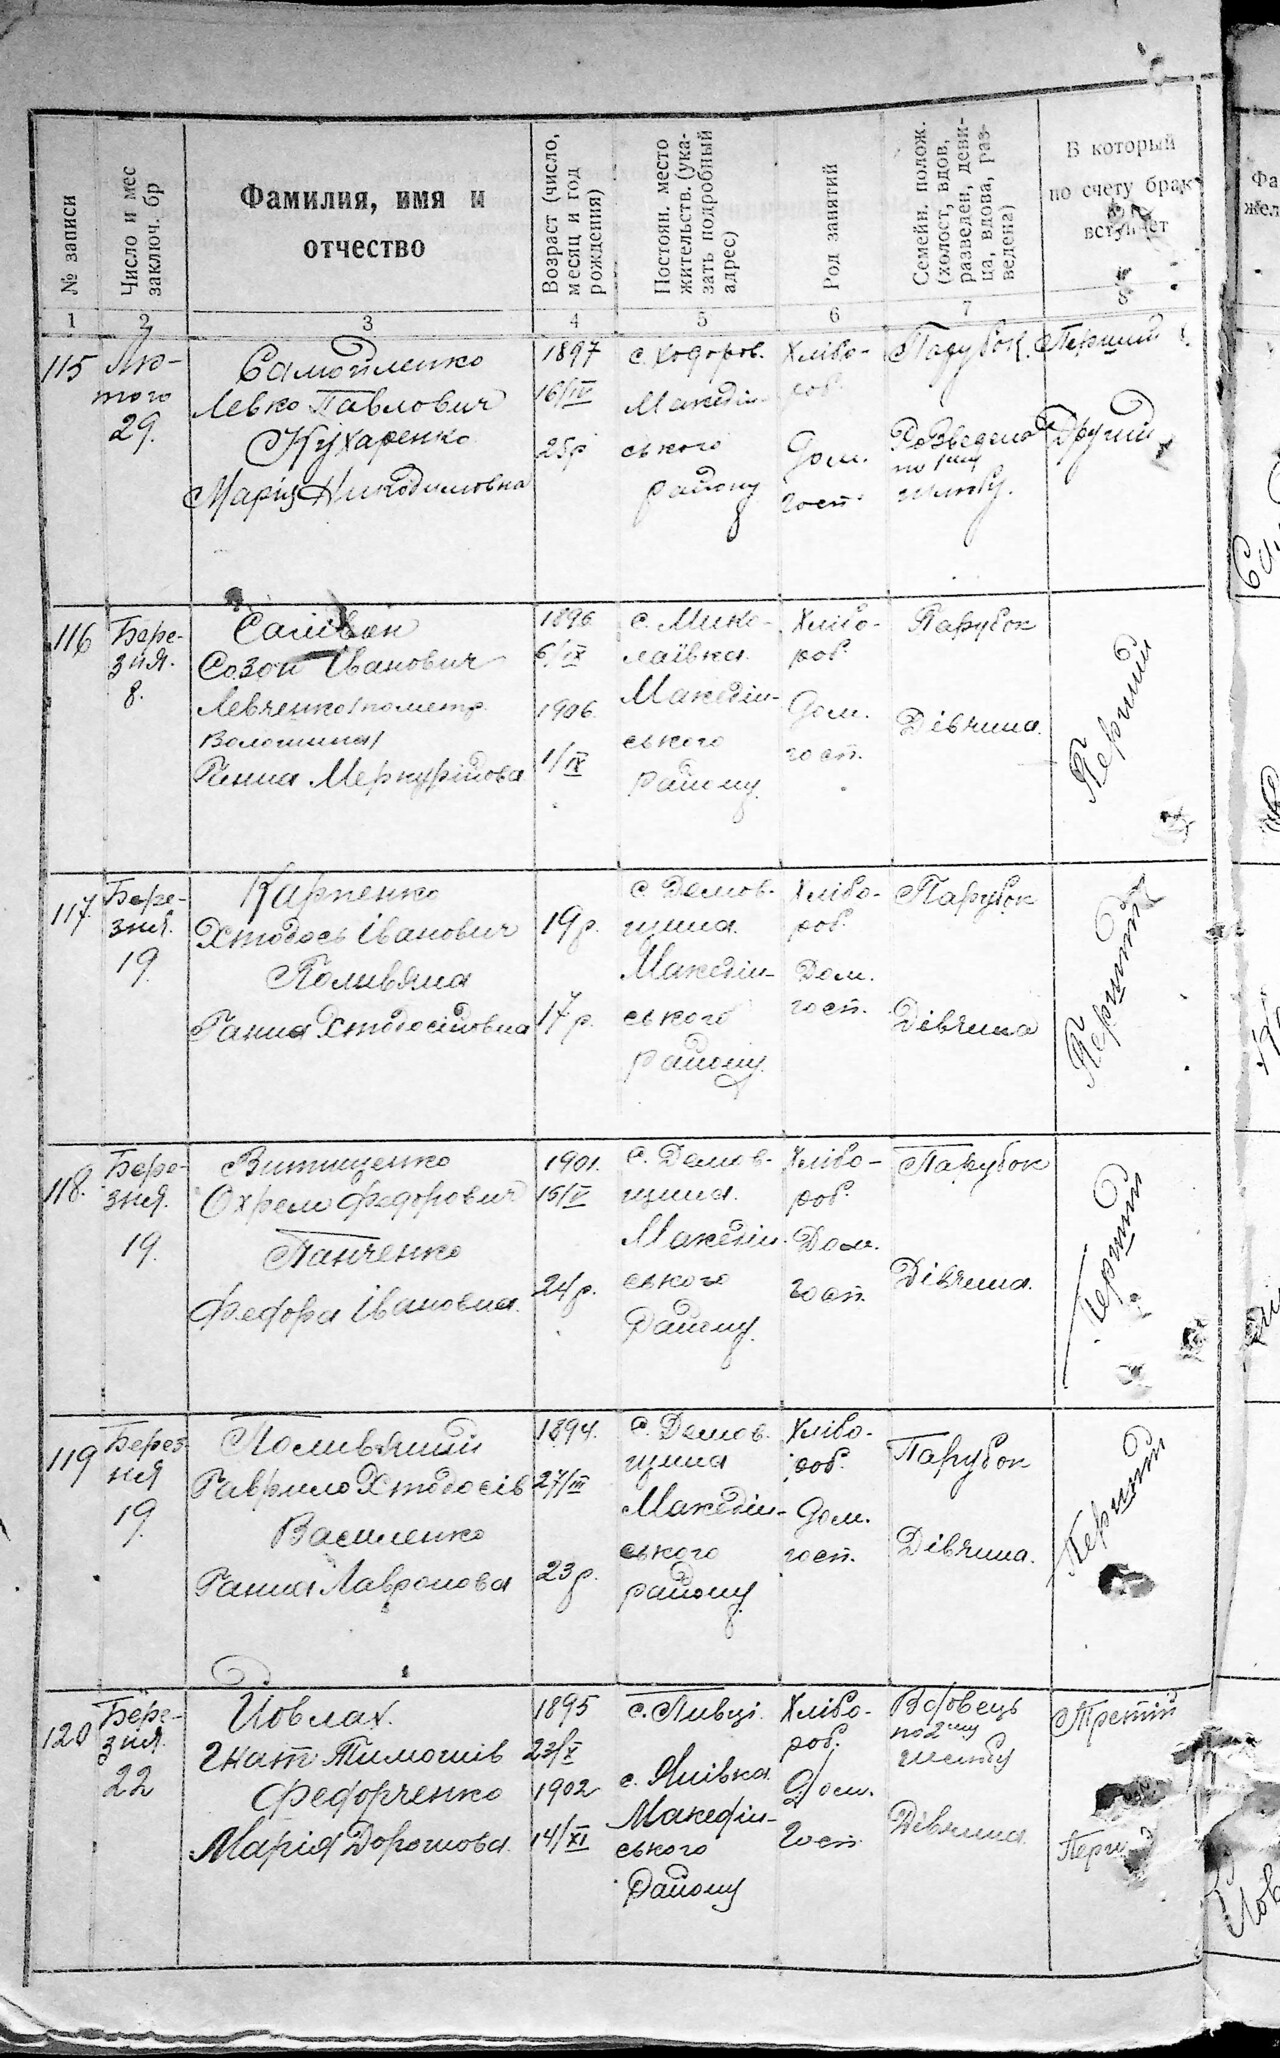 № записи
Число и мес
заключ. бр
Фамилия, имя и
отчество
Возраст (число,
месяц и год
рождения)
Постоян. место
жительств. (ука-
зать подробный
адрес)
Род занятий
Семейн. полож.
(холост, вдов,
разведен, деви-
ца, вдова, раз-
ведена)
В который
по счету брак
вступает
1 2 3 4 5 6 7 8
115 Лю-
того
29.
Самойленко
Левко Павлович
Кухаренко
Марія Никодимовна
1897
16/IV
25р
с. Ходоров.
Македін-
ського
району
Хлібо-
роб.
Дом.
гост.
Парубок.
Розведена
по 1му
шлюбу.
Перший
Другий
116 Бере-
зня.
8.
Салівон
Созон Іванович
Левченко
Волошина/
Ганна Меркурійова
1896
6/IX
1906
1/IX
с. Мико-
лаївка.
Македін-
ського
району.
Хлібо-
роб.
Дом.
гост.
Парубок
Дівчина.
Перший
117. Бере-
зня.
19.
Карпенко
Хтодось Іванович
Поливяна
Ганна Хтодосіївна
19р.
17р.
с. Демов-
щина.
Македін-
ського
району.
Хлібо-
роб.
Дом.
гост.
Парубок
Дівчина
Перший
118. Бере-
зня.
19.
Охрем Федорович
Панченко
Федора Івановна.
1901.
15/V
24р.
с. Демов-
щина.
Македін-
ського
Району.
Хлібо-
роб.
Дом.
гост.
Парубок
Дівчина.
Перший
119 Берез-
ня
19.
Поливяний
Гаврило Хтодосів
Василенко
Ганна Лавронова
1894.
27/III
23р.
с. Демов-
щина
Македін-
ського
району.
Хлібо-
роб.
Дом.
гост.
Парубок
Дівчина.
Перший
120 Бере-
зня.
22
Йовлах.
Гнат Тимошів
Федорченко
Марія Дорошова.
1895
23/X
1902
14/XI
с. Пивці.
с. Янівка.
Македін-
ського
Району
Хлібо-
роб.
Дом.
Гост.
Вдовець
по 2му
шлюбу
Дівчина.
Третій